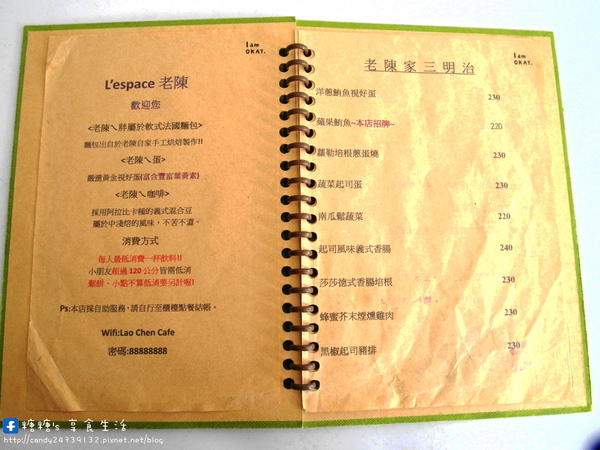 I am
OKAY.
L'espace 老陳
歡迎您
<老陳ㄟ胖屬於軟式法國麵包>
麵包出自於老陳自家手工烘焙製作!!
<老陳ㄟ蛋>
嚴選黃金視好蛋(富含豐富葉黃素)
<老陳ㄟ咖啡>
採用阿拉比卡種的義式混合豆
屬於中淺焙的風味，不苦不澀。
消費方式
每人最低消費一杯飲料!!
小朋友超過 120 公分皆需低消
鬆餅、小點不算低消要另計喔!
Ps:本店採自助服務，請自行至櫃檯點餐結帳。
Wifi:Lao Chen Cafe
密碼:88888888
I am
OKAY.
老陳家三明治
洋蔥鮪魚視好蛋 230
蘋果鮪魚~本店招牌~ 220
蘿勒培根蔥蛋燒 230
蔬菜起司蛋 230
南瓜鬆蔬菜 220
起司風味義式香腸 240
莎莎德式香腸培根 230
蜂蜜芥末煙燻雞肉 230
黑椒起司豬排 230
糖糖's 享食生活
http://candy24739132.pixnet.net/blog